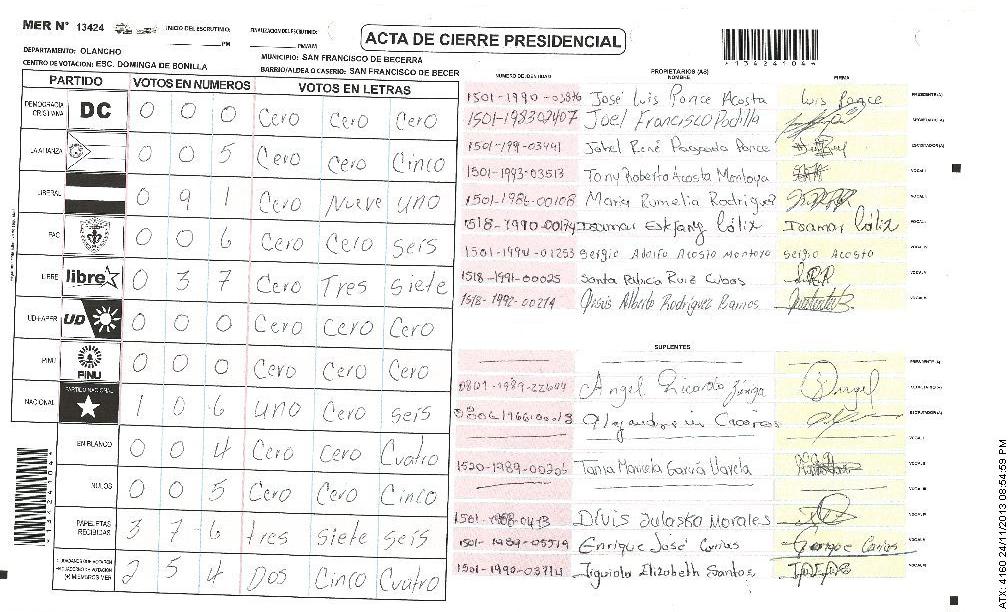 MER Nº 13424
INICIO DEL ESCRUTINIO: PM
FINALIZACION DEL ESCRUTINIO: PM/AM
ACTA DE CIERRE PRESIDENCIAL
DEPARTAMENTO: OLANCHO
MUNICIPIO: SAN FRANCISCO DE BECERRA
CENTRO DE VOTACION: ESC. DOMINGA DE BONILLA
BARRIO/ALDEA O CASERIO: SAN FRANCISCO DE BECER
PARTIDO VOTOS EN NUMEROS VOTOS EN LETRAS
DEMOCRACIA CRISTIANA DC 0 0 0 Cero Cero Cero
LA ALIANZA 0 0 5 Cero Cero Cinco
LIBERAL 0 9 1 Cero Nueve uno
PAC 0 0 6 Cero Cero seis
LIBRE libre 0 3 7 Cero Tres siete
UD-FAPER UD 0 0 0 Cero Cero Cero
PINU PINU 0 0 0 Cero Cero Cero
NACIONAL PARTIDO NACIONAL 1 0 6 uno Cero seis
EN BLANCO 0 0 4 Cero Cero Cuatro
NULOS 0 0 5 Cero Cero Cinco
PAPELETAS RECIBIDAS 3 7 6 tres siete seis
CIUDADANOS QUE VOTARON
(+) MIEMBROS MER 2 5 4 Dos Cinco Cuatro
NUMERO DE IDENTIDAD PROPIETARIOS (AS) NOMBRE FIRMA
1501-1990-03876 José Luis Ponce Acosta Luis Ponce PRESIDENTE(A)
1501-198302407 Joel Francisco Padilla SECRETARIO(A)
1501-199-03441 René Ponce ESCRUTADOR(A)
1501-1993-03513 Tony Roberto Acosta Montoya VOCAL I
1501-1986-00108 Maria Rumelia Rodriguez
1518-1990-00174 Isamar Lólix Isamar Lólix
1501-1994-01253 Sergio Adolfo Acosta Montoya Sergio Acosta
1518-1991-00025 Santa Ruiz Cubas
1518-1992-00214 Jesús Alberto Rodriguez Ramos
SUPLENTES
PRESIDENTE(A)
0801-1989-22644 Angel Ricardo Zúniga Angel SECRETARIO(A)
ESCRUTADOR(A)
VOCAL I
1520-1989-00205 Tania Mariela Garcia Varela VOCAL II
VOCAL III
Divis Julaska Morales
1501-1989-05519 Enrique José Carias Enrique Carias
1501-1990-03714 Elizabeth Santos
13424104
ATX: 4160 24/11/2013 08:54:59 PM